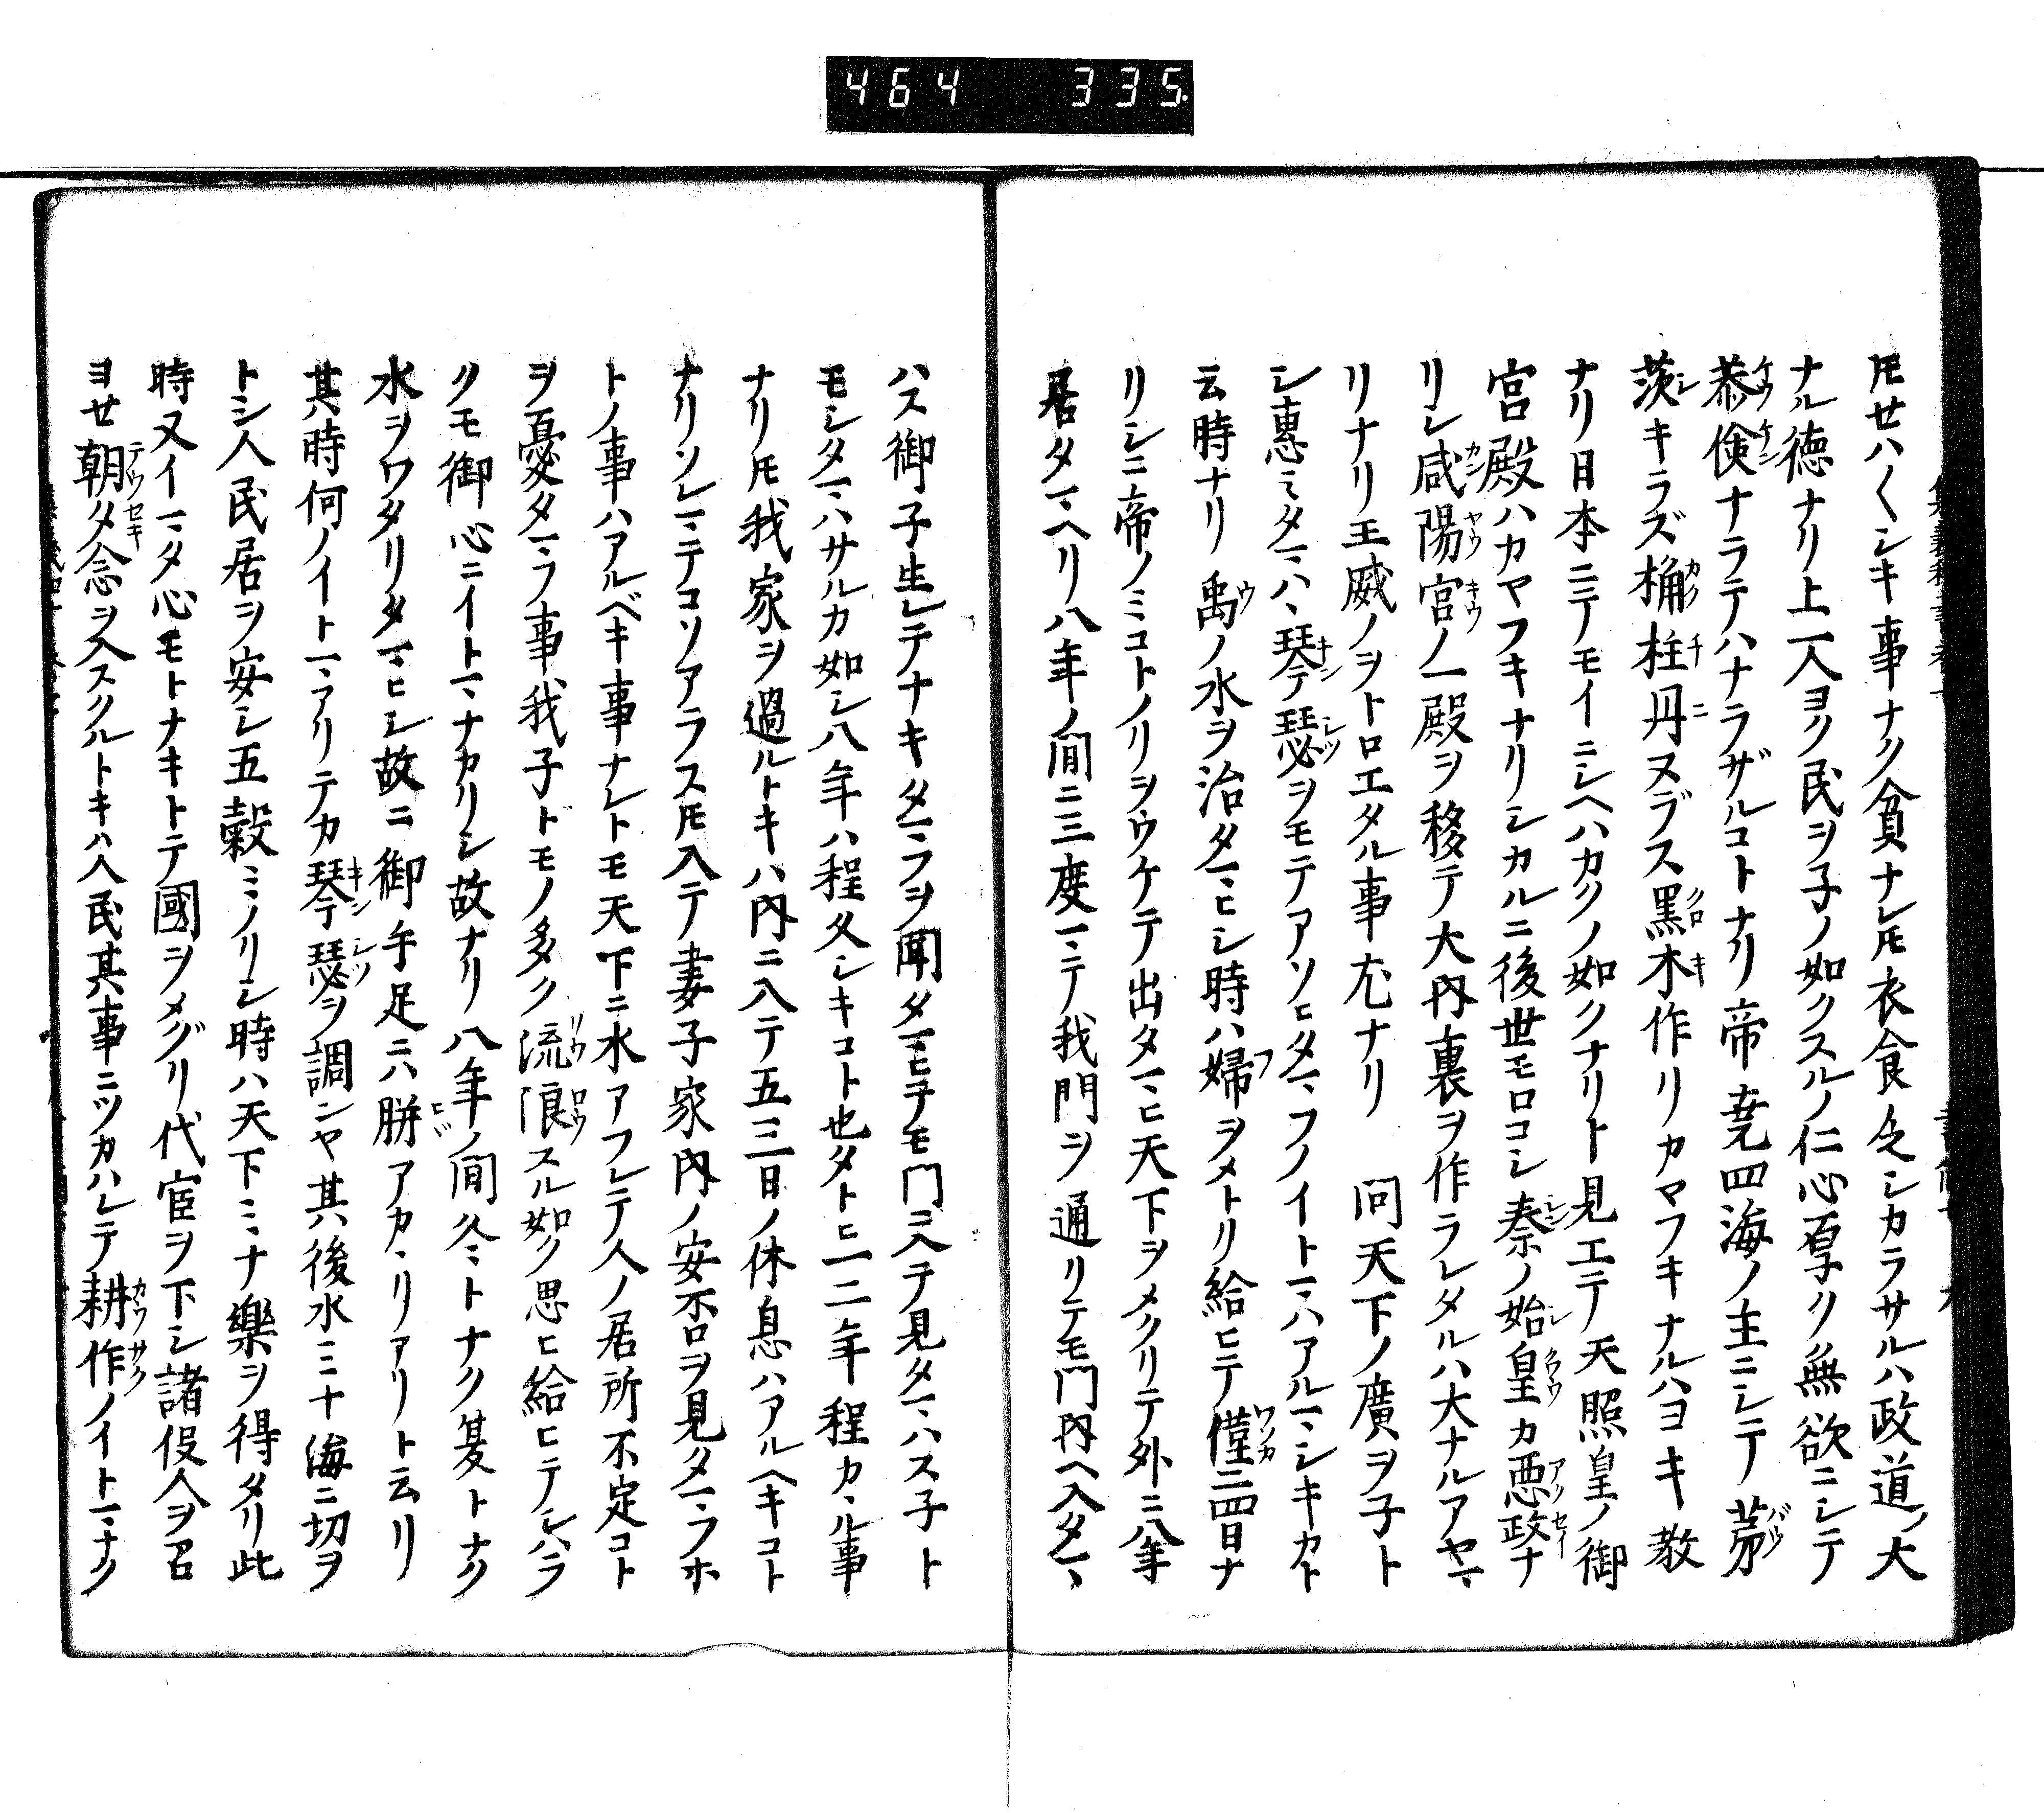 464 335
𪜈せハ〱シキ事ナク貧ナレ𪜈衣食乏シカラサルハ政道ノ大
ナル徳ナリ上一人ヨク民ヲ子ノ如クスルノ仁心厚ク無欲ニシテ
恭倹ナラテハナラザルコトナリ帝尭四海ノ主ニシテ茅
茨キラズ桷柱丹ヌブス黒木作リカマフキナルハヨキ教
ナリ日本ニテモイニシヘハカクノ如クナリト見エテ天照皇ノ御
宮殿ハカヤフキナリシカルニ後世モロコシ秦ノ始皇カ悪政ナ
リシ咸陽宮ノ一殿ヲ移テ大内裏ヲ作ラレタルハ大ナルアヤマ
リナリ王威ノヲトロエタル事尤ナリ　問天下ノ廣ヲ子ト
シ恵ミタマハヽ琴瑟ヲモテアソヒタマフノイトマハアルマシキカト
云時ナリ禹ノ水ヲ治タマヒシ時ハ婦ヲメトリ給ヒテ僅ニ四日ナ
リシニ帝ノミコトノリヲウケテ出タマヒ天下ヲメクリテ外ニ八年
居タマヘリ八年ノ間ニ三度マテ我門ヲ通リテモ門内ヘ入タマ
ハス御子生レテナキタマフヲ聞タマヒテモ門ニ入テ見タマハス子ト
モシタマハサルカ如シ八年ハ程久シキコト也タトヒ一二年程カヽル事
ナリ𪜈我家ヲ過ルトキハ内ニ入テ五三日ノ休息ハアルヘキコト
ナリソレマテコソアラス𪜈入テ妻子家内ノ安否ヲ見タマフホ
トノ事ハアルベキ事ナレトモ天下ニ水アフレテ人ノ居所不定コト
ヲ憂タマフ事我子ドモノ多ク流浪スル如ク思ヒ給ヒテシハラ
クモ御心ニイトマナカリシ故ナリ八年ノ間冬トナク夏トナク
水ヲワタリタマヒシ故ニ御手足ニハ胼アカヽリアリト云リ
其時何ノイトマアリテカ琴瑟ヲ調ンヤ其後水ミナ海ニ切ヲ
トシ人民居ヲ安シ五穀ミノリシ時ハ天下ミナ樂ヲ得タリ此
時又イマタ心モトナキトテ國ヲメグリ代官ヲ下シ諸役人ヲ召
ヨせ朝夕念ヲ入スクルトキハ人民其事ニツカハレテ耕作ノイトマナク